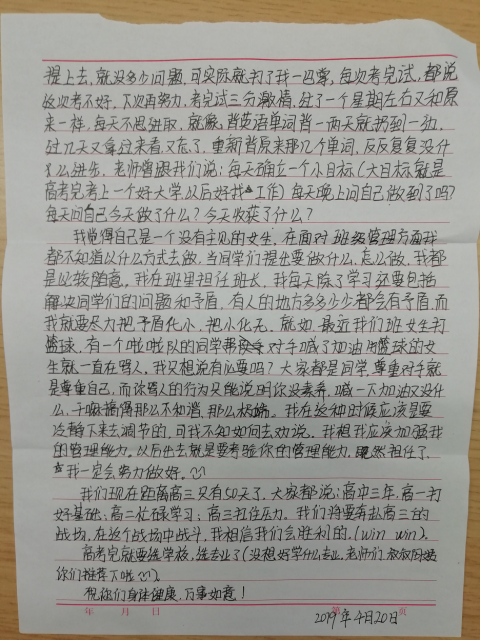 提上去,就没多少问题,可实际就打了我一巴掌,每次考完试,都说
这次考不好,下次再努力,考完试三分激情,过了一个星期左右又和原
来一样,每天不思进取,就像背英语单词背一两天就扔到一边,
过几天又拿过来看又忘了,重新背原来那几个单词,反反复复没什
么进步,老师曾跟我们说:每天确立一个小目标(大目标就是
高考完考上一个好大学,以后好找工作)每天晚上问自己做到了吗?
每天问自己今天做了什么?今天收获了什么?
我觉得自己是一个没有主见的女生,在面对班级管理方面我
都不知道以什么方式去做,当同学们提出要做什么,怎么做,我都
是比较随意,我在班里担任班长,我每天除了学习还要包括
解决同学们的问题和矛盾,有人的地方多多少少都会有矛盾,而
我就要尽力把矛盾化小,把小化无,就如最近我们班女生打
篮球,有一个啦啦队的同学帮对手喊了加油,打篮球的女
生就一直在骂人,我又想说有必要吗?大家都是同学,尊重对手就
是尊重自己,而你骂人的行为只能说明你没素养,喊一下加油又没什
么,干嘛搞得那么不和谐,那么极端。我在这种时候应该是要
冷静下来去调节的,可我不知如何去劝说,我想我应该加强我
的管理能力,以后出去就是要考验你的管理能力,既然担任了,
我一定会努力做好。
我们现在距离高三只有50天了,大家都说:高中三年,高一打
好基础;高二忙碌学习;高三扛住压力。我们将要奔赴高三的
战场,在这个战场中战斗,我相信我们会胜利的。(win win).
高考完就要选学校,选专业了(没想好学什么专业,老师们叔叔阿姨
你们推荐下啦).
祝你们身体健康,万事如意!
年 月 日 第 页
2019年4月20日